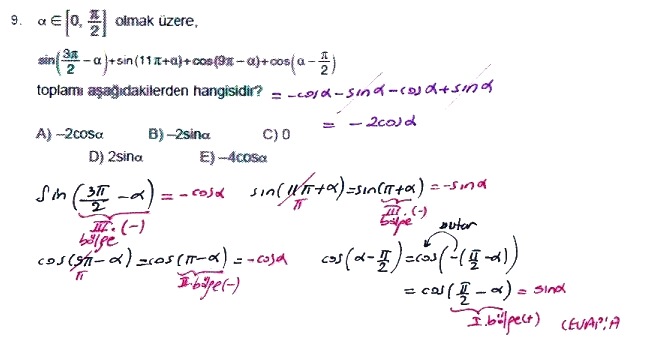 9. α ∈ [0, π/2] olmak üzere,
sin(3π/2 − α)+sin(11π+α)+cos(9π−α)+cos(α − π/2)
toplamı aşağıdakilerden hangisidir? = −cosα − sinα − cosα + sinα
= −2cosα
A) −2cosα B) −2sinα C) 0
D) 2sinα E) −4cosα
sin(3π/2 − α) = −cosα sin(11π+α)=sin(π+α) = −sinα
III. bölge (−) π III. bölge (−)
yutar
cos(9π−α)=cos(π−α) = −cosα cos(α−π/2)=cos(−(π/2−α))
π II. bölge(−) = cos(π/2 − α) = sinα
I. bölge(+) CEVAP: A